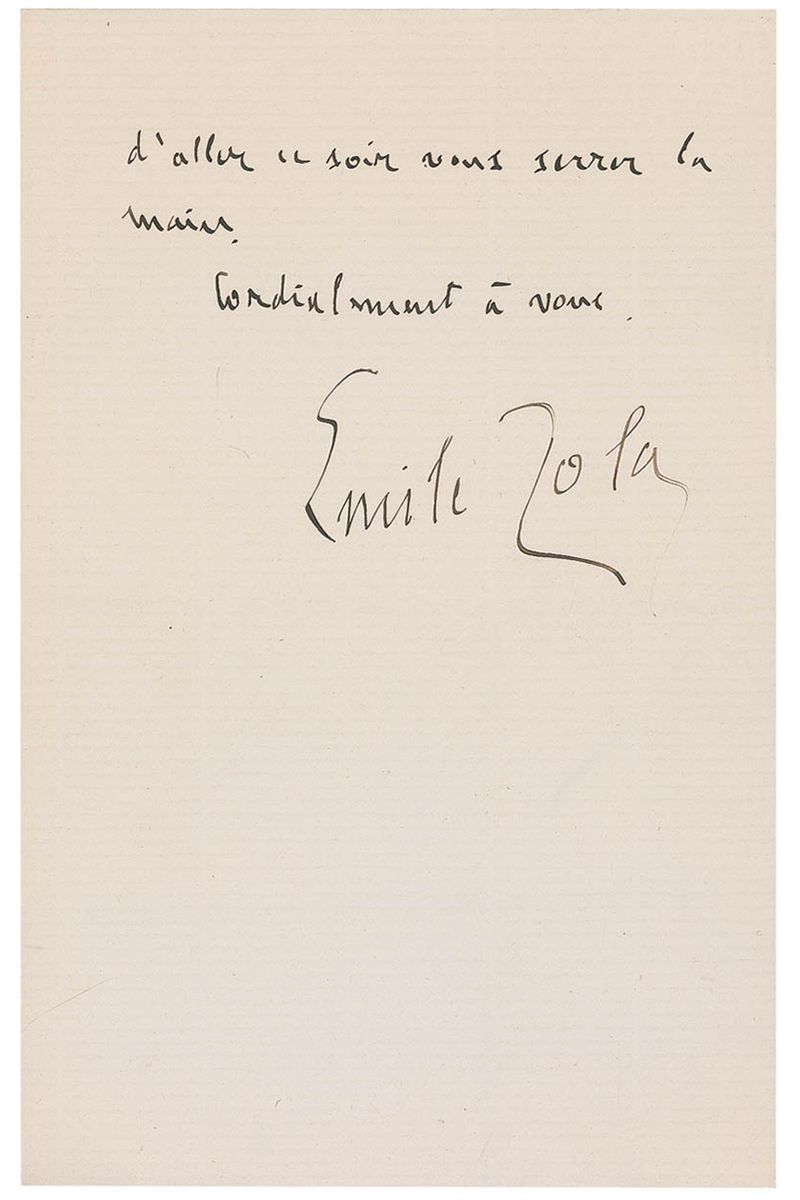 d'aller ce soir vous serrer la
main.
Cordialement à vous.
Emile Zola